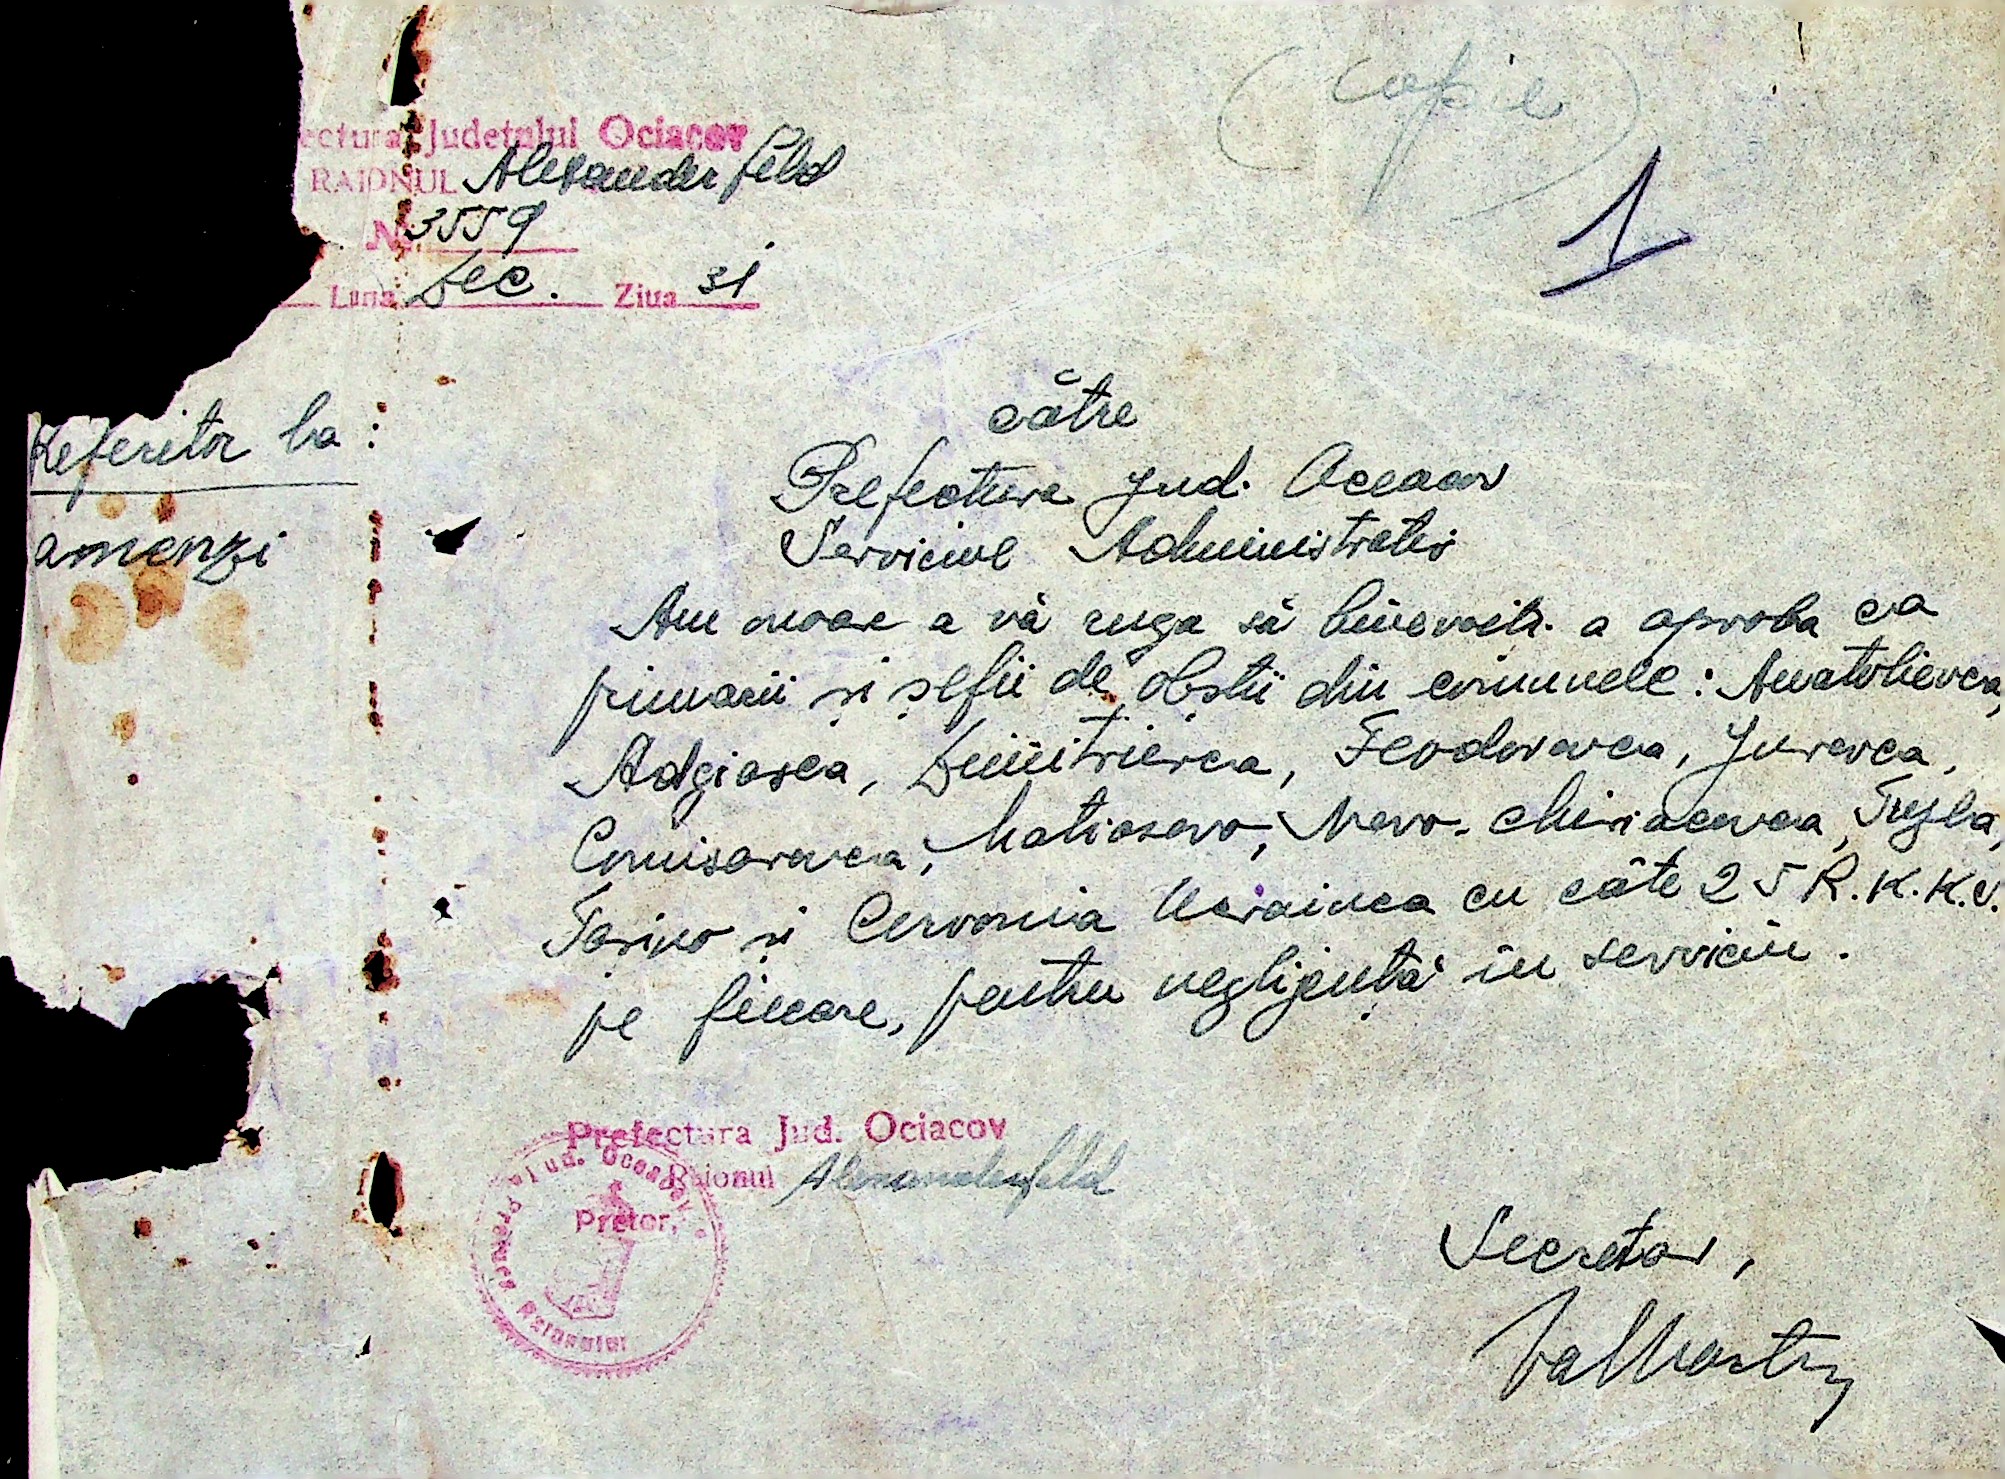 (Copie)
1
ectura Județului Ociacov
RAIONUL Alexanderfeld
No. 3559
Luna Dec. Ziua 31
Referitor la :
amenzi
către
Prefectura Jud. Oceacov
Serviciul Administrativ
Am onoare a vă ruga să binevoiți a aproba ca
primarii și șefii de obștii din comunele : Anatolievca,
Adgiasca, Dimitrievca, Feodorovca, Jurevca,
Comisarovca, Matiasovo, Novo-Chiriacovca, Tuzla,
Tasino și Cervonia Ucrainca cu câte 25 R.K.K.S.
pe fiecare, pentru negligență în serviciu.
Prefectura Jud. Ociacov
Raionul Alexanderfeld
Pretor,
Jud. Oceacov
Raionului
Secretar,